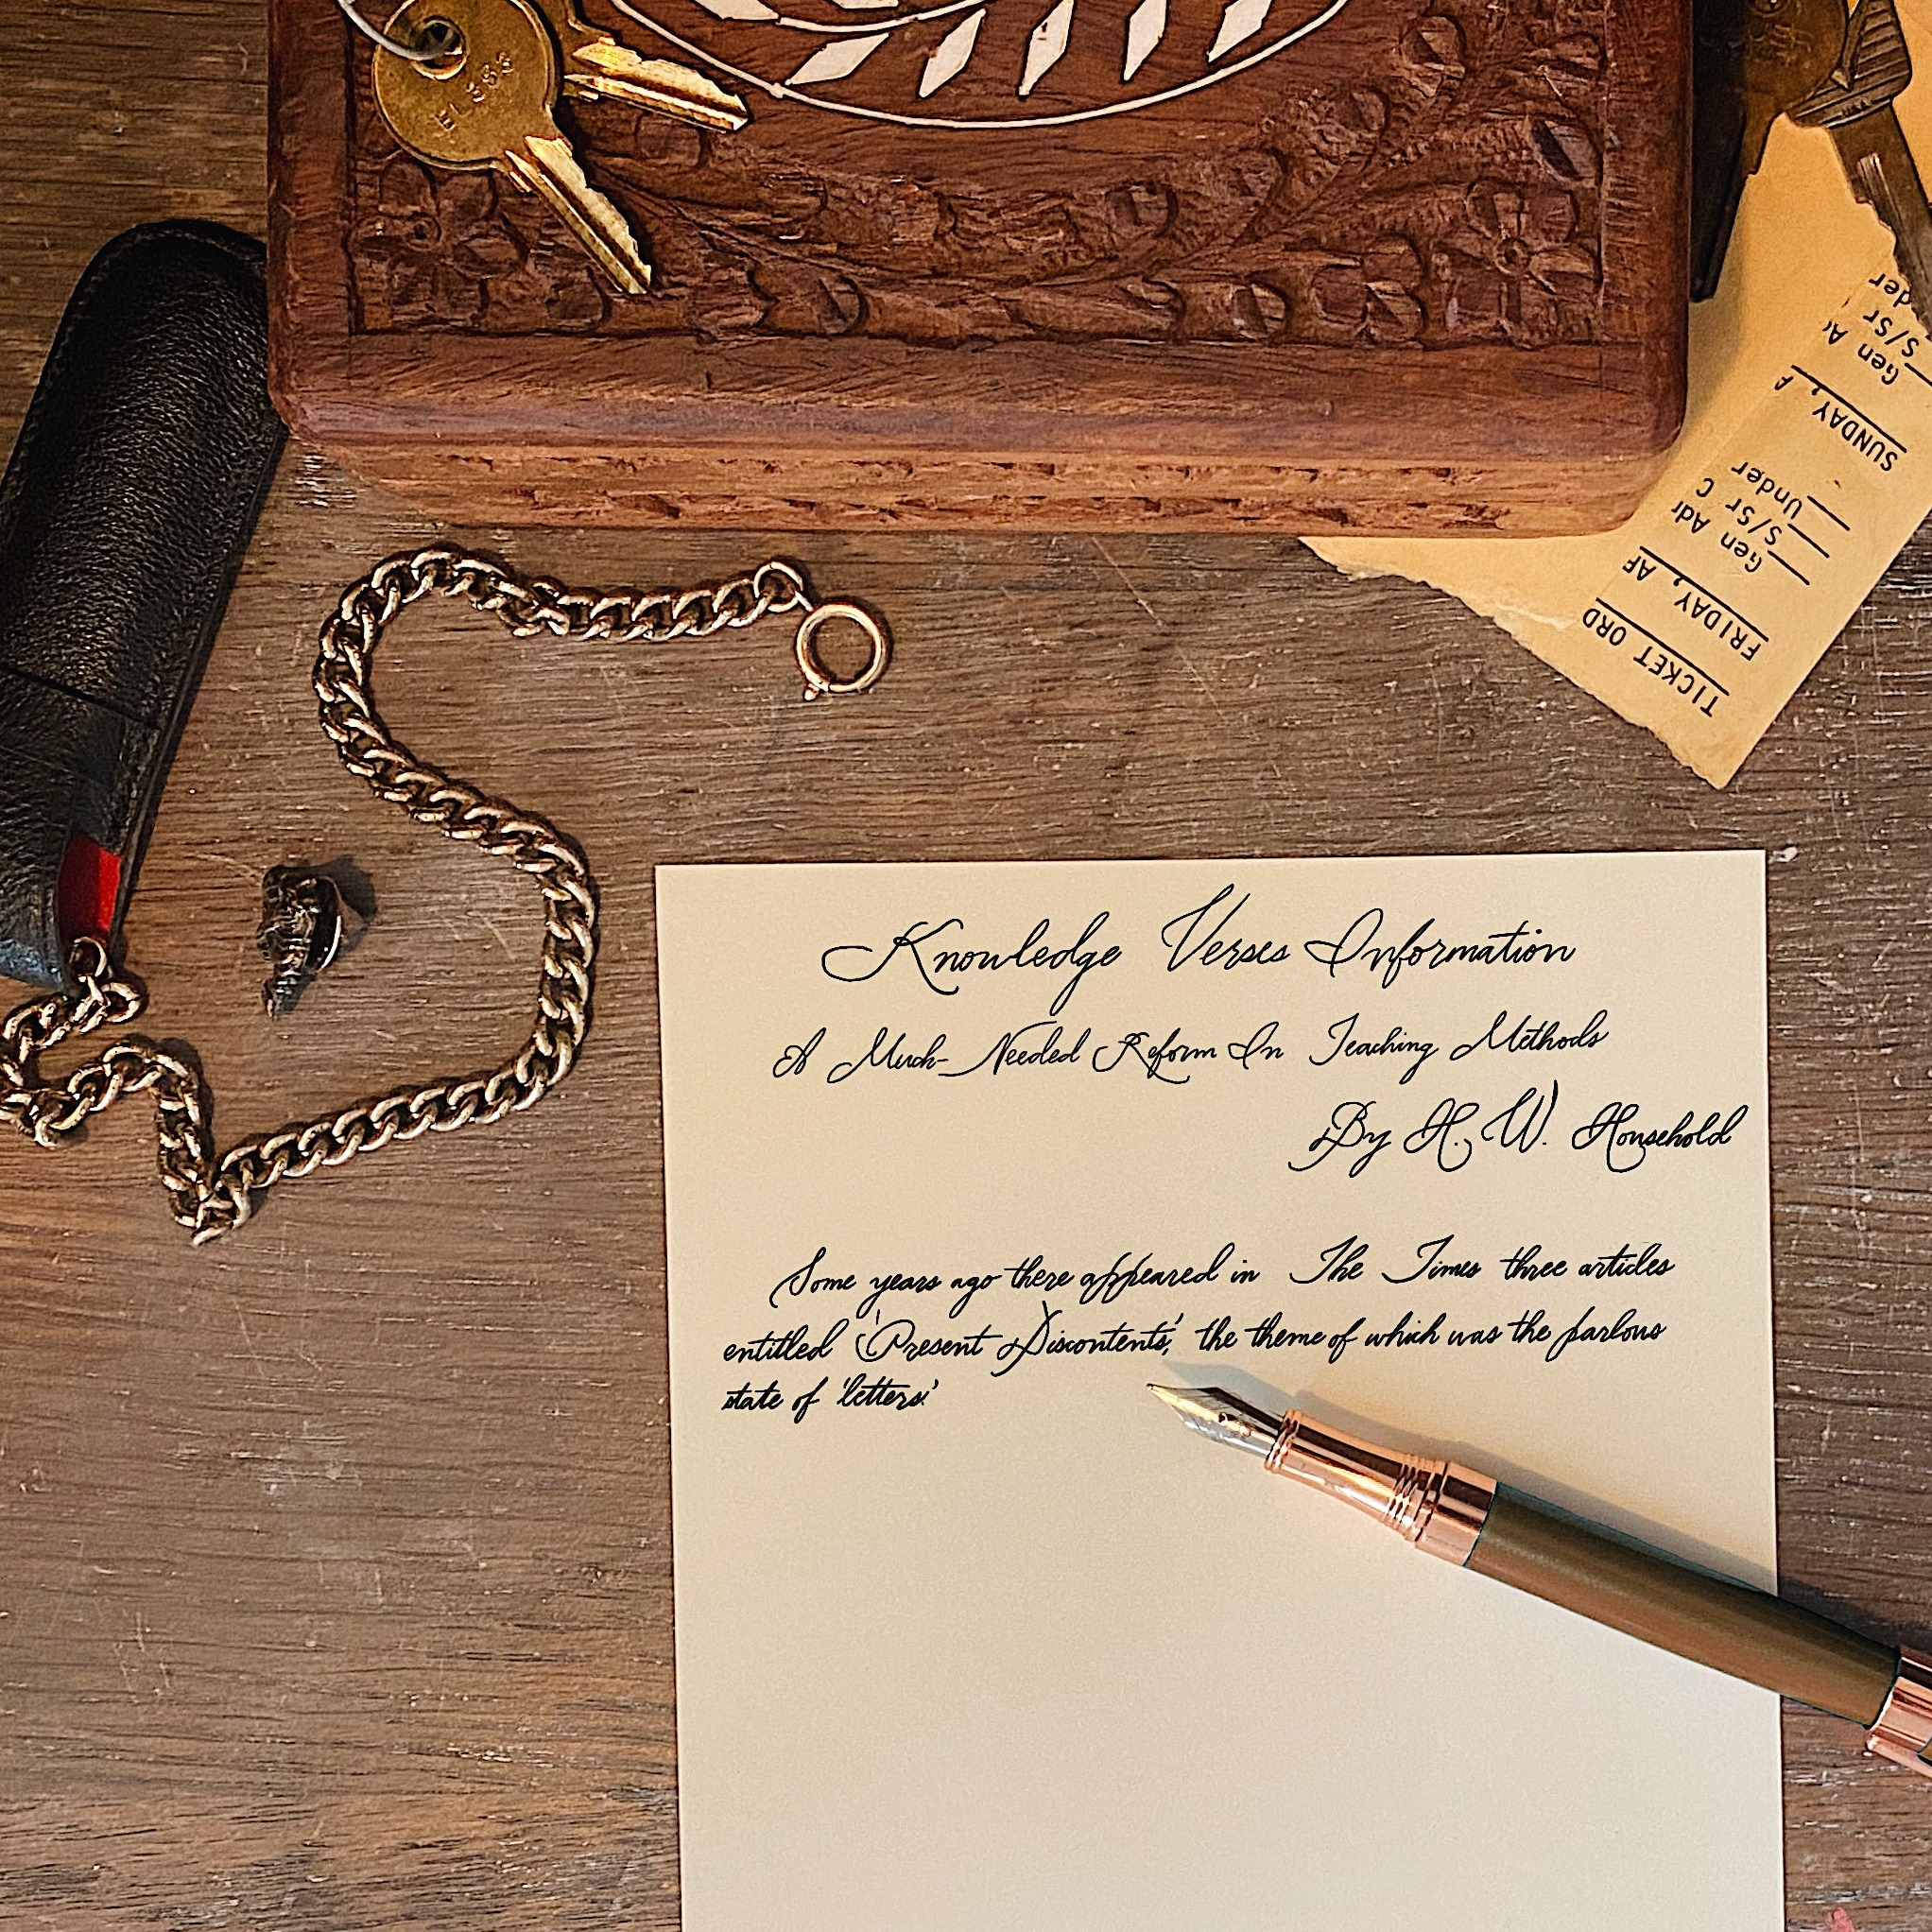 Knowledge Verses Information
A Much-Needed Reform In Teaching Methods
By H. W. Household
Some years ago there appeared in The Times three articles
entitled 'Present Discontents', the theme of which was the parlous
state of 'letters.'
TICKET ORD
FRIDAY, AF
Gen Adr
S/Sr C
Under
SUNDAY, A
Gen A
S/Sr